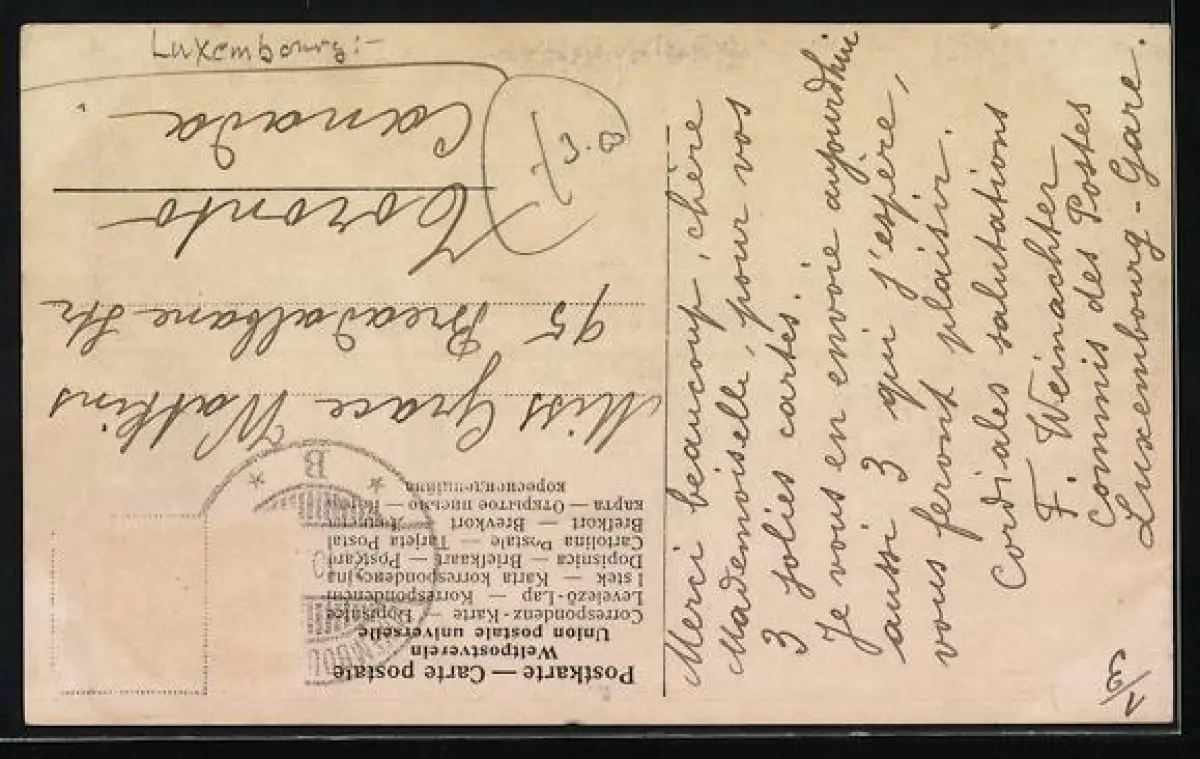 Luxembourg:-
Postkarte — Carte postale
Weltpostverein
Union postale universelle
Correspondenz-Karte — Dopisnice
Levelező-Lap — Korrespondencni
lstek — Karta korrespondencyjna
Dopisnica — Briefkaart — Postcard
Cartolina Postale — Tarjeta Postal
Brefkort — Brevkort —
карта — Открытое письмо —
кореспонденциина
B
Miss Grace Watkins
95 Breadalbane Str
Toronto
Canada.
Merci beaucoup, chère
Mademoiselle, pour vos
3 jolies cartes.
Je vous en envoie aujourdhui
aussi 3 qui j'espère,
vous feront plaisir.
Cordiales salutations
F. Weinachter
Commis des Postes
Luxembourg-Gare.